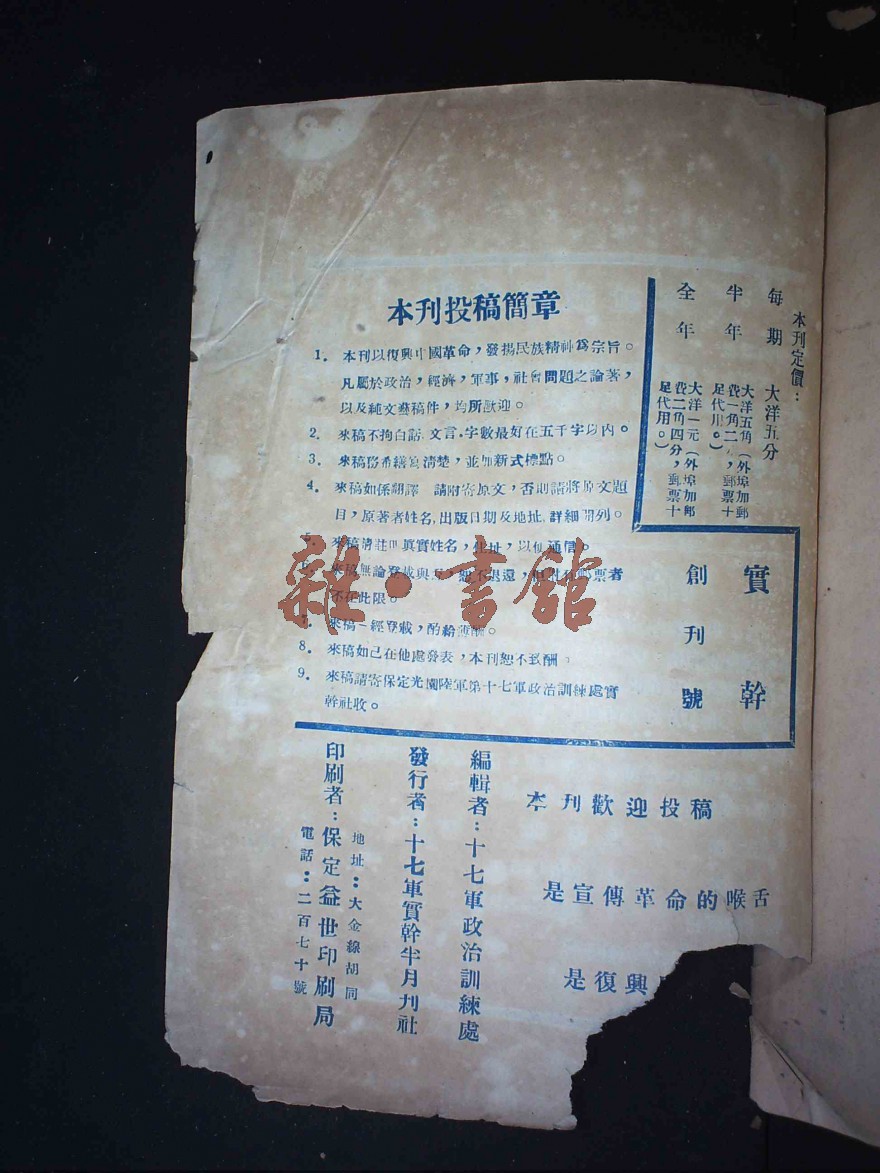 本刊定價：
每期 大洋五分
半年 大洋五角（外埠加郵
費一角二，郵票十
足代用。）
全年 大洋一元（外埠加郵
費二角四分，郵票十
足代用。）
實幹
創刊號
本刊投稿簡章
1. 本刊以復興中國革命，發揚民族精神爲宗旨。
凡屬於政治，經濟，軍事，社會問題之論著，
以及純文藝稿件，均所歡迎。
2. 來稿不拘白話，文言，字數最好在五千字以內。
3. 來稿務希繕寫清楚，並加新式標點。
4. 來稿如係翻譯 請附寄原文，否則請將原文題
目，原著者姓名，出版日期及地址，詳細開列。
來稿請註明真實姓名，住址，以便通信。
來稿無論登載與 恕不退還，但 郵票者
不在此限。
7. 來稿一經登載，酌給薄酬。
8. 來稿如已在他處發表，本刊恕不致酬。
9. 來稿請寄保定光園陸軍第十七軍政治訓練處實
幹社收。
雜·書館
本刊歡迎投稿
是宣傳革命的喉舌
是復興
編輯者：十七軍政治訓練處
發行者：十七軍實幹半月刊社
地址：大金線胡同
印刷者：保定益世印刷局
電話：二百七十號